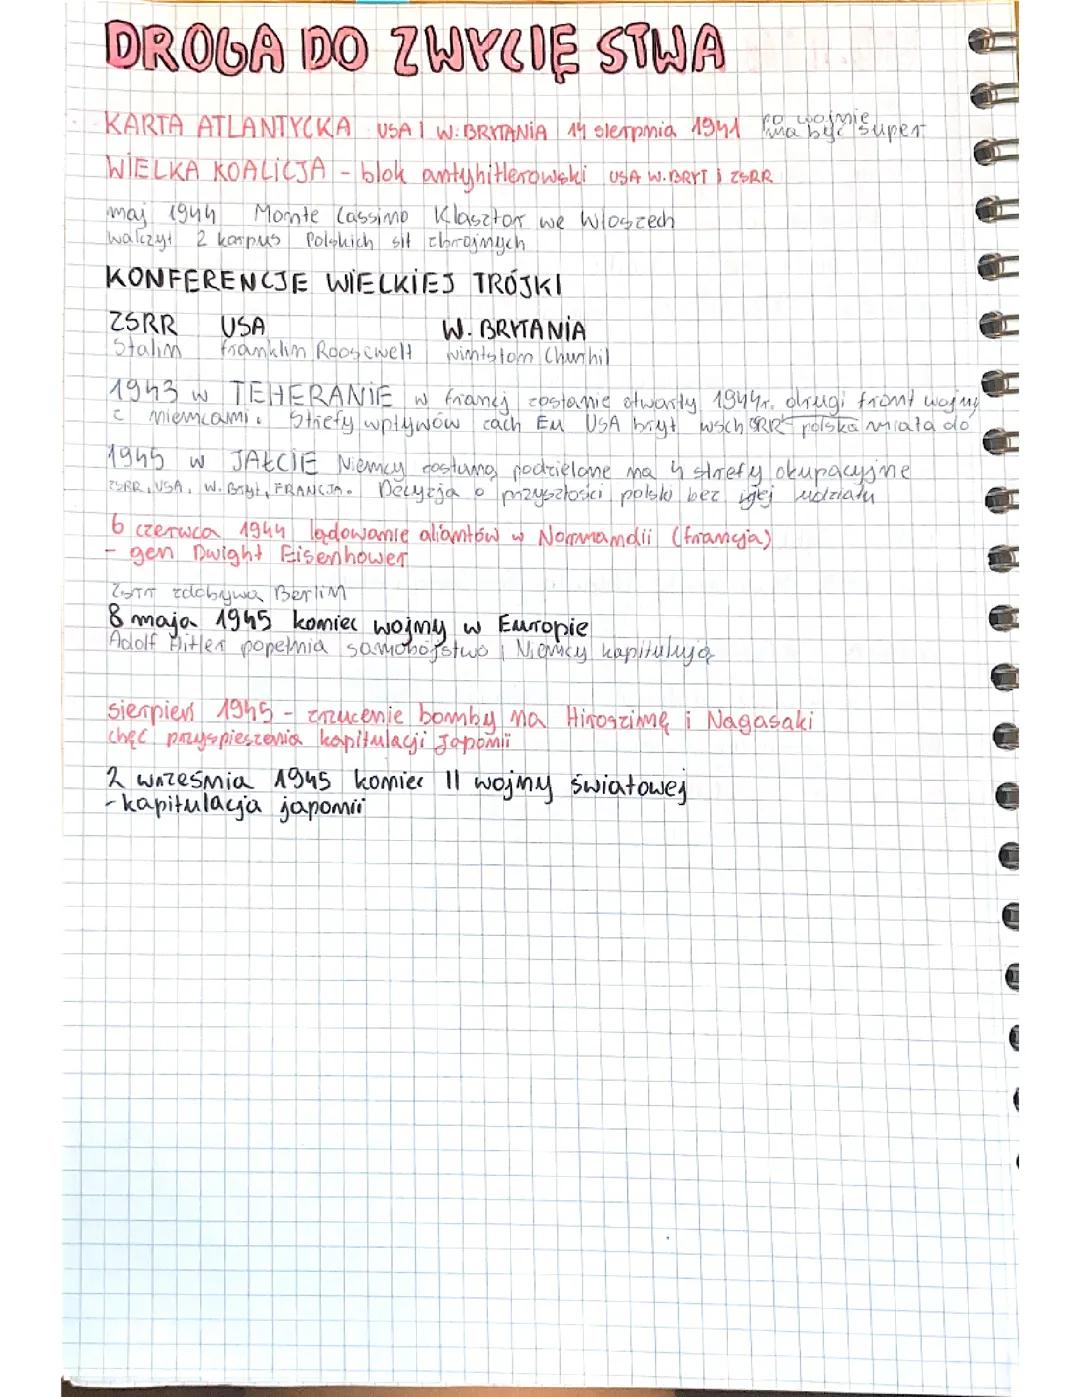 DROGA DO ZWYCIĘSTWA
KARTA ATLANTYCKA USA I W. BRYTANIA 14 sierpnia 1941 po wojnie ma być super
WIELKA KOALICJA - blok antyhitlerowski USA W.BRYT i ZSRR
maj 1944 Monte Cassino Klasztor we Włoszech
walczył 2 korpus Polskich sił zbrojnych
KONFERENCJE WIELKIEJ TRÓJKI
ZSRR USA W. BRYTANIA
Stalin Franklin Roosewelt Wintston Churhil
1943 w TEHERANIE w francj zostanie otwarty 1944r. drugi front wojny
z niemcami. Strefy wpływów zach Eu USA bryt wsch ZSRR polska miała do
1945 w JAŁCIE Niemcy zostaną podzielone na 4 strefy okupacyjne
ZSRR, USA, W. Bryt, FRANCJA. Decyzja o przyszłości polski bez jej udziału
6 czerwca 1944 lądowanie aliantów w Normandii (francja)
- gen Dwight Eisenhower
ZSRR zdobywa Berlin
8 maja 1945 koniec wojny w Europie
Adolf Hitler popełnia samobójstwo i Niemcy kapitulują
sierpień 1945 - zrzucenie bomby na Hiroszimę i Nagasaki
chęć przyspieszenia kapitulacji Japonii
2 września 1945 koniec II wojny światowej
- kapitulacja japonii